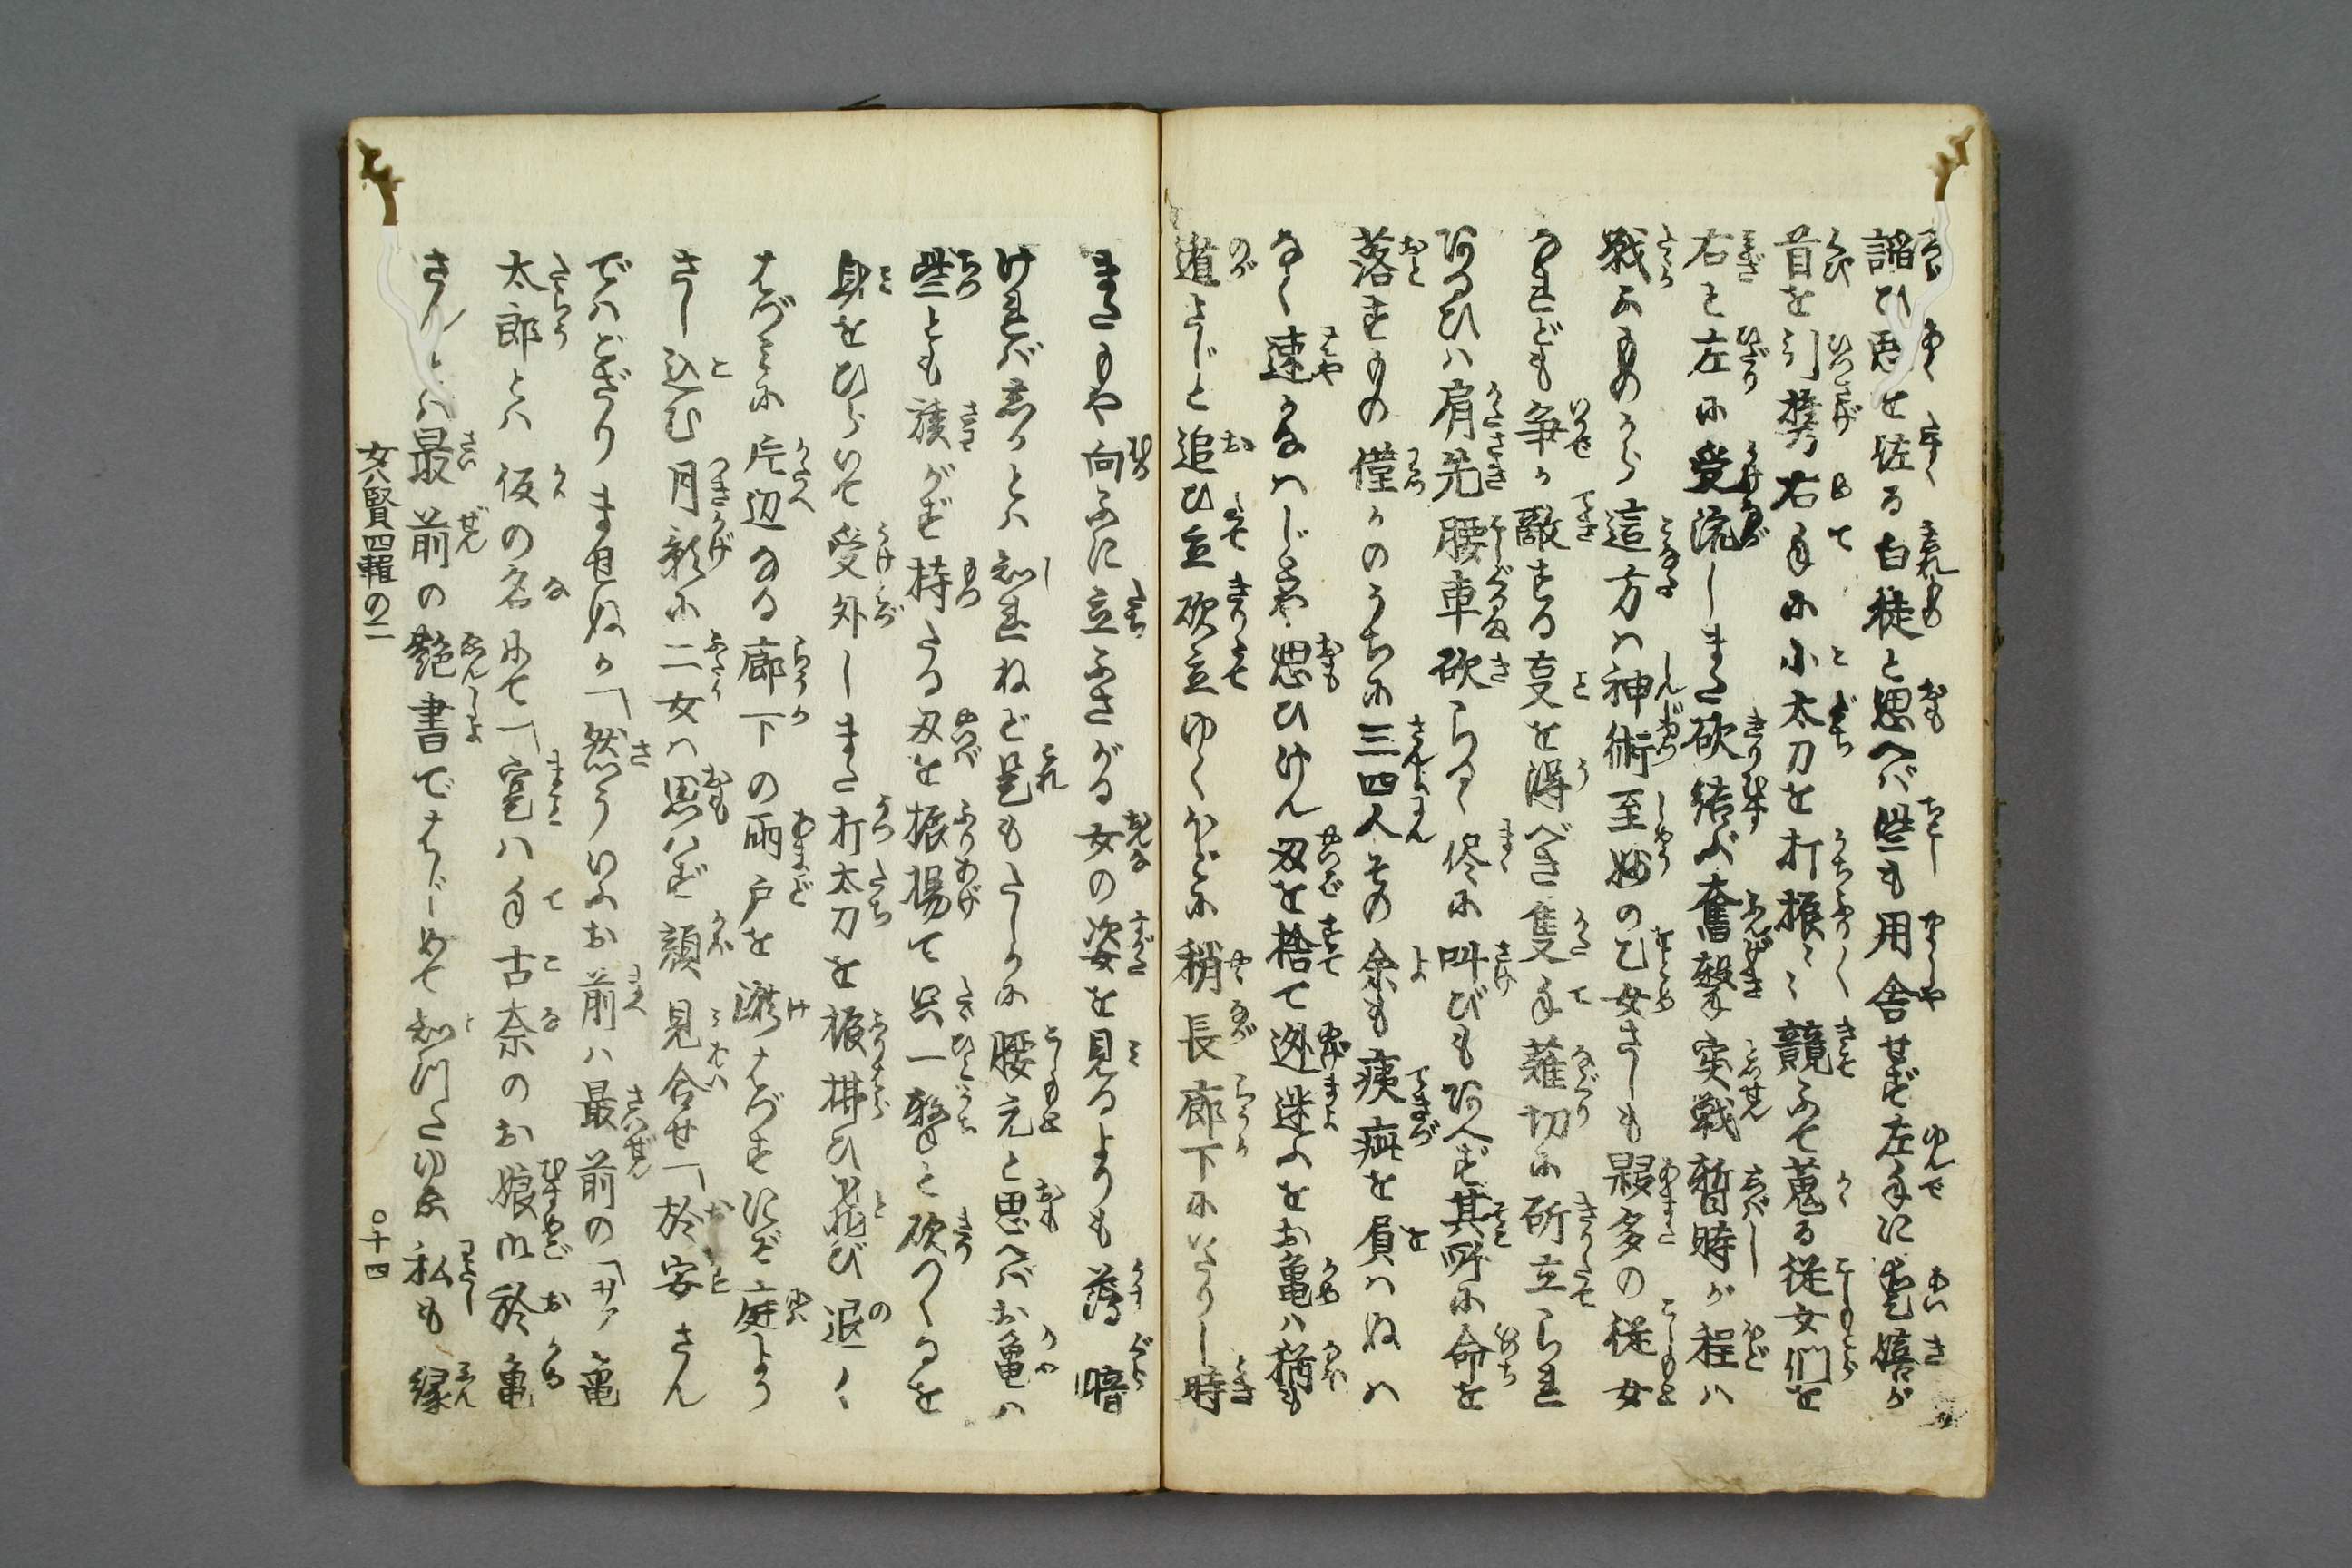 諂ひ悪を佐る白徒と思へば些も用舎せず左手に愛嬉が
首を引提右手に小太刀を打振〻競ふて蒐る従女們を
右と左に受流しまた砍結ぶ奮撃突戦暫時が程は
戦ふものから這方は神術至妙の乙女さしも夥多の従女
なれども争か敵する叓を得べき隻手薙切に斫立られ
あるひは肩先腰車砍らるゝ侭に叫びもあへず其所に命を
落すもの僅かのうちに三四人その余も痍疵を負はぬは
なく速かなはじとや思ひけん刄を捨て逊迷ふをお亀は猶も
遁さじと追ひ立砍立ゆくほどに稍長廊下にいたりし時
またもや向ふに立ふさがる女の姿を見るよりも薄暗
ければ志かとは知れねど是もたしかに腰元と思へばお亀は
些とも議がず持たる刄を振揚て只一撃と砍つくるを
身をひらいて受外しまた打太刀を振拂ひ飛び退く
はづみに片辺なる廊下の雨戸を蹴はづすにぞ庭より
さし込む月影に二女は思はず顔見合せ「於安さん
ではござりませぬか「然ういふお前は最前の「サア亀
太郎とは仮の名にて「寔は手古奈のお娘御於亀
さん「とは最前の艶書ではじめて知つたゆゑ私も縁
女八賢四輯の二
〇十四